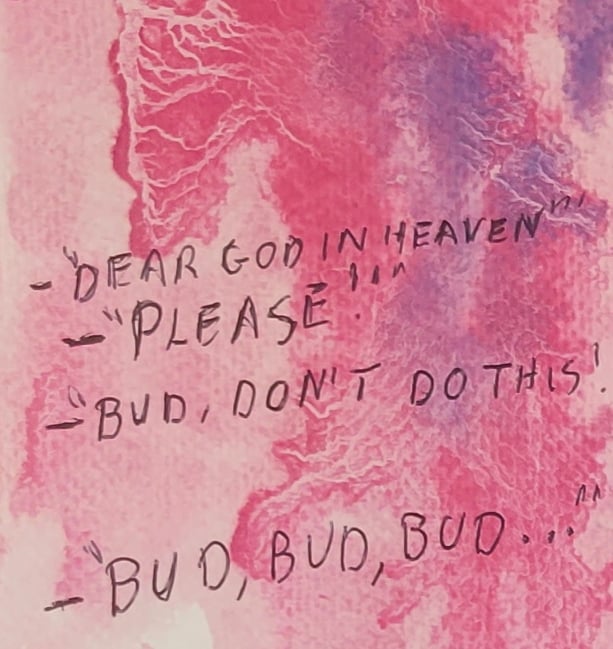 -"DEAR GOD IN HEAVEN"''
-"PLEASE!'''
-"BUD, DON'T DO THIS!
-"BUD, BUD, BUD..."